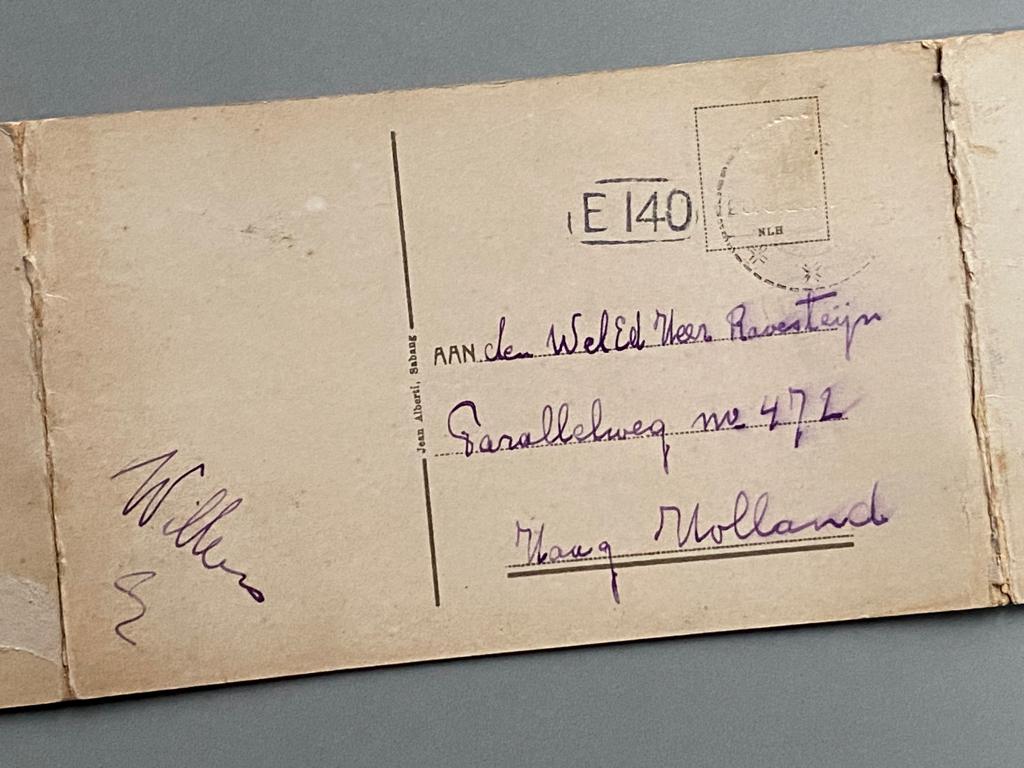 E 140
NLH
Jean Alberti, Sabang
AAN den WelEd Heer Ravesteijn
Parallelweg no 472
Haag Holland
Willem